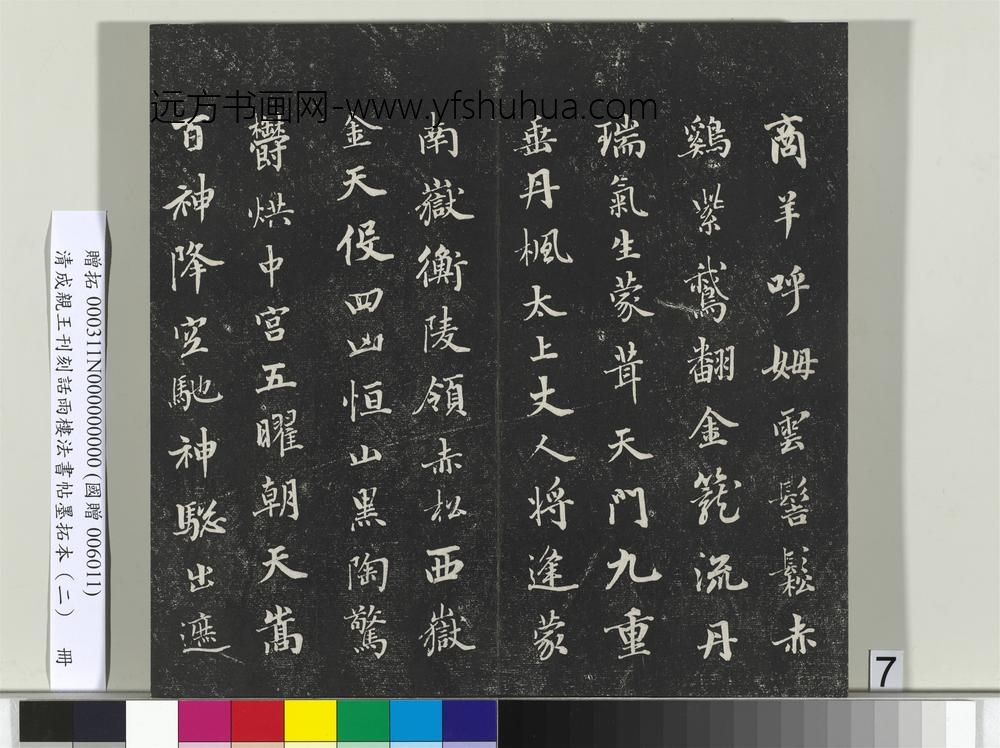 商羊呼姆雲髻鬆赤
鷄紫鸞翻金籠流丹
瑞氣生蒙茸天門九重
垂丹楓太上丈人将逢蒙
南嶽衡陵領赤松西嶽
金天促四凶恒山黑陶驚
欝烘中宮五曜朝天嵩
百神降空馳神騘出遮
远方书画网-www.yfshuhua.com
贈拓 000311N000000000(國贈 006011)
清成親王刊刻話雨樓法書帖墨拓本(二) 冊
7